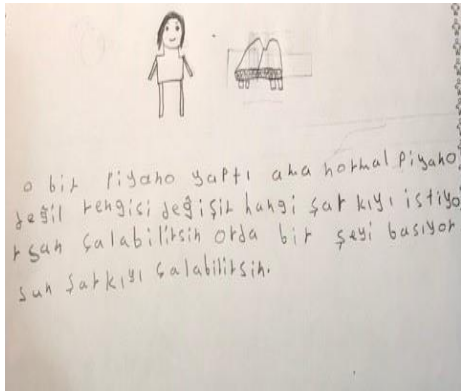 o bir piyano yaptı ama normal piyano
değil rengisi değişir hangi şar kıyı istiyo
rsan çalabilirsin orda bir şeyi basıyor
sun şarkıyı çalabilirsin.